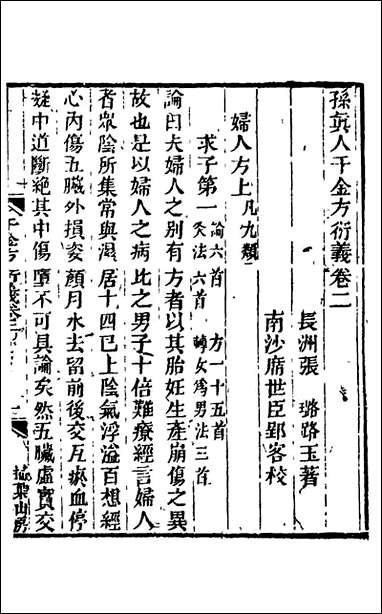 孫真人千金方衍義卷二
長洲張 璐路玉著
南沙席世臣郢客校
婦人方上凡九類
求子第一 論六首 方一十五首 灸法六首 轉女爲男法三首
論曰夫婦人之別有方者以其胎妊生產崩傷之異
故也是以婦人之病比之男子十倍難療經言婦人
者眾陰所集常與濕居十四已上陰氣浮溢百想經
心內傷五臟外損姿顏月水去留前後交互瘀血停
凝中道斷絕其中傷墮不可具論矣然五臟虛實交
千金方衍義卷二
掃葉山房